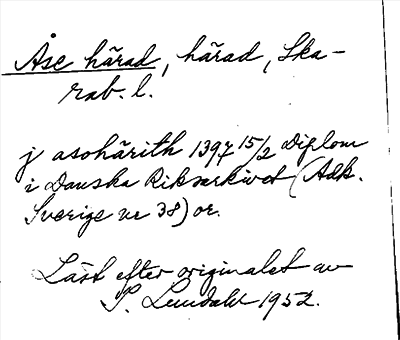 Åse härad, härad, Ska-
rab. l.
j asohärith 1397 15/2 Diplom
i Danska Riksarkivet (Adk.
Sverige nr 38) or.
Läst efter originalet av
I. Lundahl 1952.